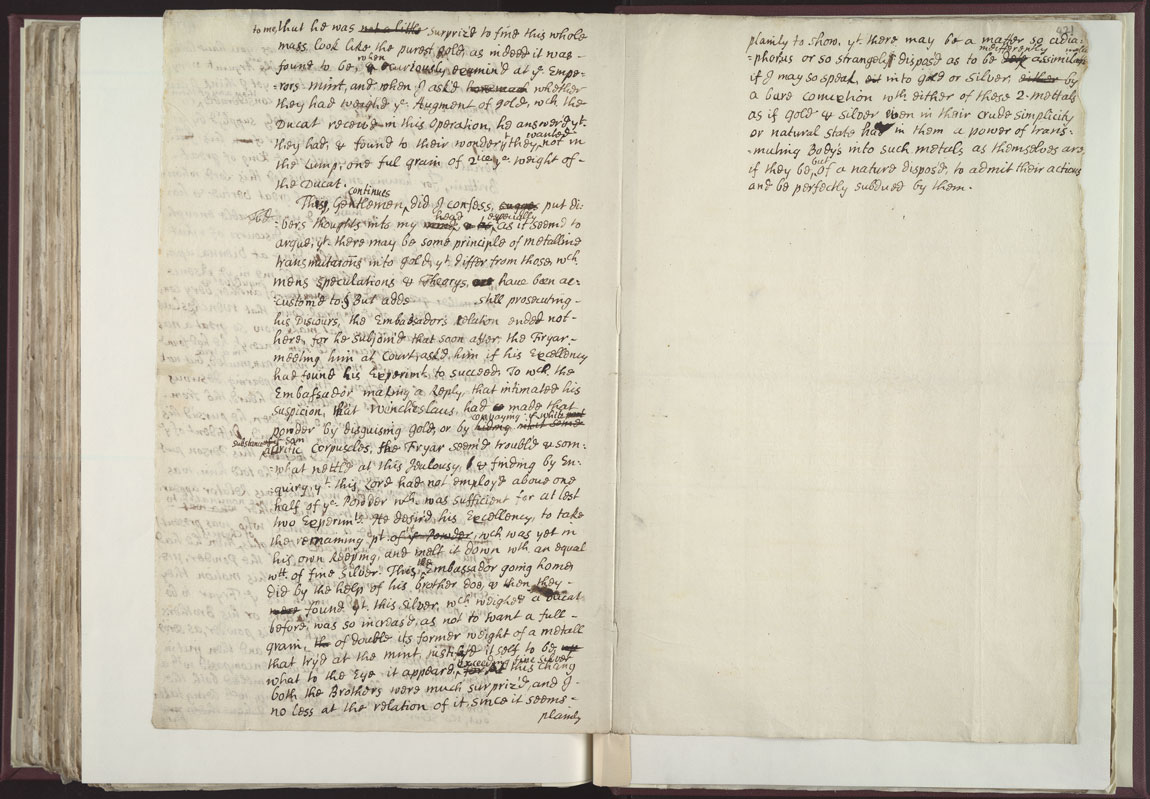 to me, that he was not a little surpriz'd to find this whole
mass look like the purest gold, as indeed it was -
found to be, when curiously examin'd at ye. Empe-
-rors mint, and when I ask'd how much whether
they had weighed ye. Augment of gold, wch the
Ducat received in this Operation, he answer'd yt.
they had, & found to their wonder yt they wanted not in
the Lump, one full grain of 2ice ye. weight of -
the Ducat.
This, continues Gentlemen, did I confess, put di-
-vers thoughts into my head, especially, as it seem'd to
argue, yt. there may be some principle of metalline
transmutations into gold, yt. differ from those, wch
mens speculations & Theorys, have been ac-
custom'd to. But adds still prosecuting -
his Discours, the Embassadors relation ended not -
here, for he subjoin'd that soon after, the Fryar -
meeting him at Court, ask'd him if his Excellency
had found his Experimt. to succeed; To wch. the
Embassador making a Reply, that intimated his
suspicion, that Wencheslaus, had made that
powder by disguising gold, or by hiding
substance
corpuscles, the Fryar seem'd troubl'd & som-
-what nettl'd at this Jealousy, & finding by En-
quiry, yt. this Lord had not employ'd above one
half of ye. Powder wch. was sufficient for at lest
two Experimts. He desir'd his Excellency, to take
the remaining pt. of ye Powder, wch was yet in
his own keeping, and melt it down wth. an equal
wtt. of fine Silver. This the Embassador going home,
did by the help of his brother doe, & then they -
were found yt. this silver, wch weighed a Ducat
before, was so increas'd, as not to want a full -
grain, of double its former weight of a metall
that try'd at the mint, justify'd itself to be
what to the Eye it appear'd, this chang
both the Brothers were much surpriz'd, and I -
no less at the relation of it, since it seems -
plainly
421
plainly to show, yt. there may be a matter so adia-
-phorus or so strangely dispos'd as to be indifferently assimilated
if I may so speak, into gold or silver, either by
a bare comixtion wth either of these 2. mettals
as if gold & silver even in their crude simplicity
or natural state had in them a power of trans-
-muting Body's into such metals as themselves are
if they be, but of a nature dispos'd, to admit their actions
and be perfectly subdued by them.